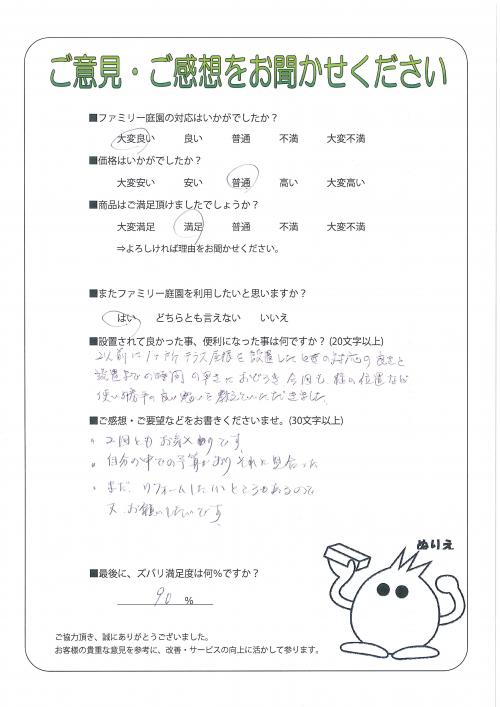 ご意見・ご感想をお聞かせください
■ファミリー庭園の対応はいかがでしたか？
大変良い 良い 普通 不満 大変不満
■価格はいかがでしたか？
大変安い 安い 普通 高い 大変高い
■商品はご満足頂けましたでしょうか？
大変満足 満足 普通 不満 大変不満
⇒よろしければ理由をお聞かせください。
■またファミリー庭園を利用したいと思いますか？
はい どちらとも言えない いいえ
■設置されて良かった事、便利になった事は何ですか？ (20文字以上)
以前に1ヶ所テラス屋根を設置した時の対応の良さと
設置までの時間の早さにおどろき今回も 位置など
使い勝手の良い 教えていただきました
■ご感想・ご要望などをお書きくださいませ。(30文字以上)
。2回とも です
。自分の中での予算があり それと見合った
・まだ リフォームしたいところもあるので
又、お願いしたいです。
ぬりえ
■最後に、ズバリ満足度は何%ですか？
90 %
ご協力頂き、誠にありがとうございました。
お客様の貴重な意見を参考に、改善・サービスの向上に活かして参ります。